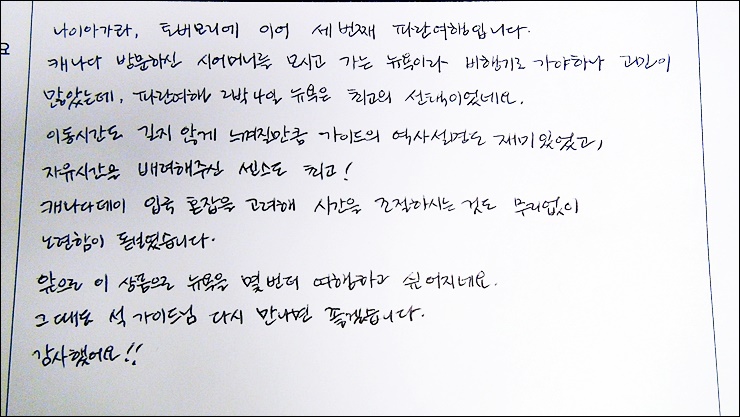 나이아가라, 토버모리에 이어 세번째 파란여행입니다.
캐나다 방문하신 시어머니를 모시고 가는 뉴욕이라 비행기로 가야하나 고민이
많았는데, 파란여행 2박4일 뉴욕은 최고의 선택이었네요.
이동시간도 길지 않게 느껴질만큼 가이드의 역사설명도 재미있었고,
자유시간을 배려해주신 센스도 최고!
캐나다데이 입국 혼잡을 고려해 시간을 조절하시는 것도 무리없이
노련함이 돋보였습니다.
앞으로 이 상품으로 뉴욕을 몇번더 여행하고 싶어지네요.
그때도 석 가이드님 다시 만나면 좋겠습니다.
감사했어요!!